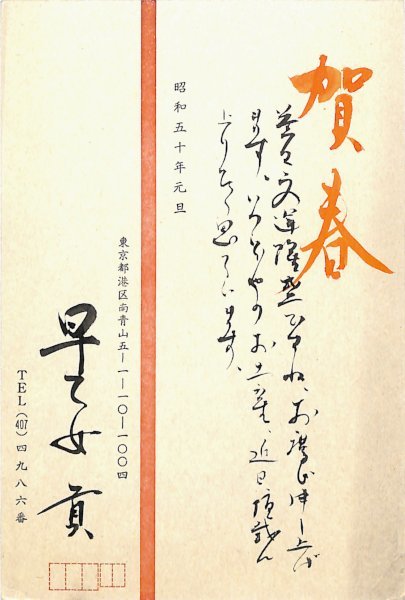 賀春
益々文運隆盛の由、お慶び申し上げ
ます。いつぞやのお土産、近日頂戴に
上りたく思っています。
昭和五十年元旦
東京都港区南青山五―一―一〇―一〇〇四
早乙女 貢
TEL(407)四九八六番